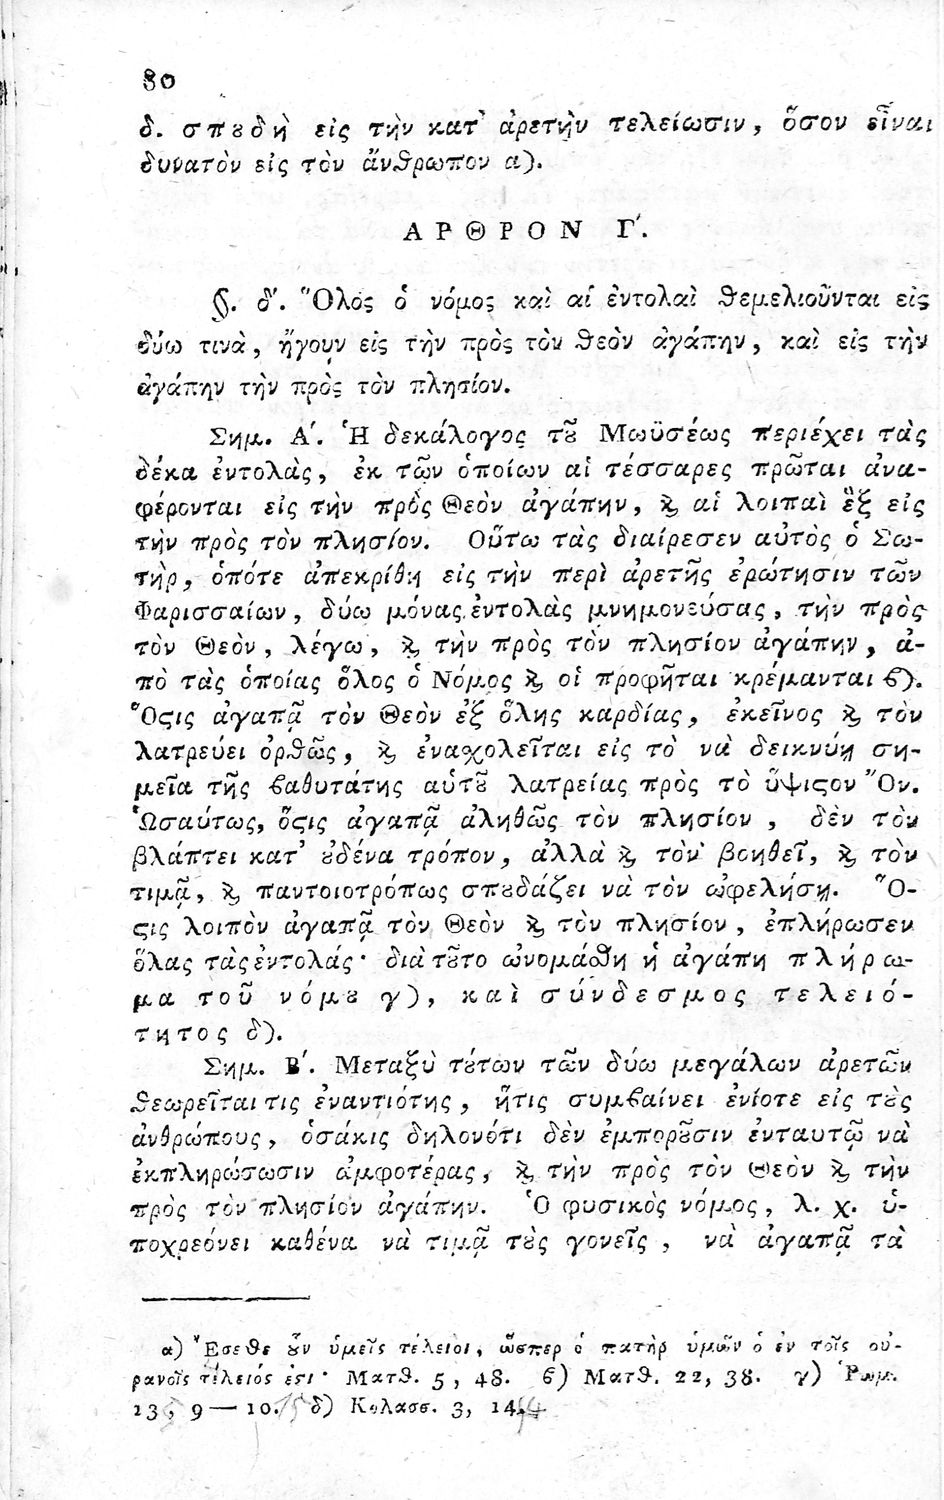 80
δ. σπȣδὴ εἰς τὴν κατ᾽ ἀρετὴν τελείωσιν, ὅσον εἶναι
δυνατὸν εἰς τὸν ἄνϑρωπον α).
ΑΡΘΡΟΝ Γ΄.
§. δ΄. Ὅλος ὁ νόμος καὶ αἱ ἐντολαὶ ϑεμελιοῦνται εἰς
δύω τινὰ, ἤγουν εἰς τὴν πρὸς τὸν Θεὸν ἀγάπην, καὶ εἰς τὴν
ἀγάπην τὴν πρὸς τὸν πλησίον.
Σημ. Α΄. Ἡ δεκάλογος τȣ͂ Μωϋσέως περιέχει τὰς
δέκα ἐντολὰς, ἐκ τῶν ὁποίων αἱ τέσσαρες πρῶται ἀνα-
φέρονται εἰς τὴν πρὸς Θεὸν ἀγάπην, ϗ αἱ λοιπαὶ ἓξ εἰς
τὴν πρὸς τὸν πλησίον. Οὕτω τὰς διαίρεσεν αὐτὸς ὁ Σω-
τὴρ, ὁπότε ἀπεκρίθη εἰς τὴν περὶ ἀρετῆς ἐρώτησιν τῶν
Φαρισσαίων, δύω μόνας ἐντολὰς μνημονεύσας, τὴν πρὸς
τὸν Θεὸν, λέγω, ϗ τὴν πρὸς τὸν πλησίον ἀγάπην, ἀ-
πὸ τὰς ὁποίας ὅλος ὁ Νόμος ϗ οἱ προφῆται κρέμανται ϐ).
Ὅϛις ἀγαπᾷ τὸν Θεὸν ἐξ ὅλης καρδίας, ἐκεῖνος ϗ τὸν
λατρεύει ὀρϑῶς, ϗ ἐναχολεῖται εἰς τὸ νὰ δεικνύῃ ση-
μεῖα τῆς ϐαθυτάτης αὑτȣ͂ λατρείας πρὸς τὸ ὕψιϛον Ὄν.
Ὡσαύτως, ὅϛις ἀγαπᾷ ἀληθῶς τὸν πλησίον, δὲν τὸν
βλάπτει κατ᾽ ȣ̓δένα τρόπον, ἀλλὰ ϗ τὸν βοηθεῖ, ϗ τὸν
τιμᾷ, ϗ παντοιοτρόπως σπȣδάζει νὰ τὸν ὠφελήσῃ. Ὅ-
ϛις λοιπὸν ἀγαπᾷ τὸν Θεὸν ϗ τὸν πλησίον, ἐπλήρωσεν
ὅλας τὰς ἐντολάς· διὰ τȣ͂το ὠνομάσθη ἡ ἀγάπη πλήρω-
μα τοῦ νόμȣ γ), καὶ σύνδεσμος τελειό-
τητος δ).
Σημ. Β΄. Μεταξὺ τȣ́των τῶν δύω μεγάλων ἀρετῶν
ϑεωρεῖται τις ἐναντιότης, ἥτις συμϐαίνει ἐνίοτε εἰς τȣ̀ς
ἀνθρώπους, ὁσάκις δηλονότι δὲν ἐμπορȣ͂σιν ἐνταυτῷ νὰ
ἐκπληρώσωσιν ἀμφοτέρας, ϗ τὴν πρὸς τὸν Θεὸν ϗ τὴν
πρὸς τὸν πλησίον ἀγάπην. Ὁ φυσικὸς νόμος, λ. χ. ὑ-
ποχρεόνει καθένα νὰ τιμᾷ τȣ̀ς γονεῖς, νὰ ἀγαπᾷ τὰ
α) Ἔσεσθε ȣ̓͂ν ὑμεῖς τέλειοι, ὥσπερ ὁ πατὴρ ὑμῶν ὁ ἐν τοῖς οὐ-
ρανοῖς τέλειός ἐϛι· Ματϑ. 5, 48. ϐ) Ματϑ. 22, 38. γ) Ῥωμ.
13, 9—10. δ) Κολασσ. 3, 14.